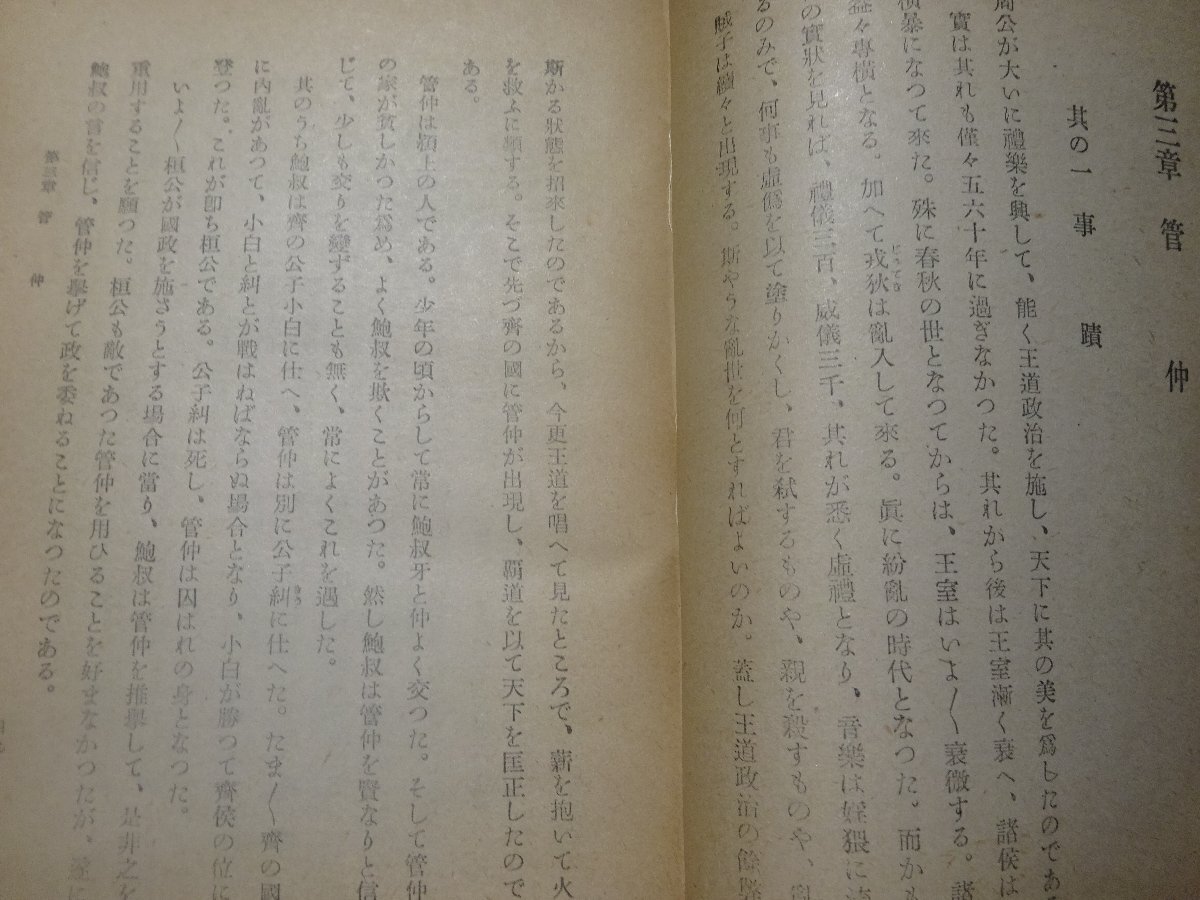 第三章 管仲
其の一 事蹟
周公が大いに禮樂を興して、能く王道政治を施し、天下に其の美を爲したのである
實は其れも僅々五六十年に過ぎなかつた。其れから後は王室漸く衰へ、諸侯は
横暴になつて來た。殊に春秋の世となつてからは、王室はいよ〳〵衰微する。諸
益々專横となる。加へて戎狄は亂入して來る。眞に紛亂の時代となつた。而かも
の實狀を見れば、禮儀三百、威儀三千、其れが悉く虛禮となり、音樂は婬猥に
るのみで、何事も虛僞を以て塗りかくし、君を弑するものや、親を殺すものや、亂
賊子は續々と出現する。斯やうな亂世を何とすればよいのか。蓋し王道政治の餘
斯かる狀態を招來したのであるから、今更王道を唱へて見たところで、薪を抱いて火
を救ふに類する。そこで先づ齊の國に管仲が出現し、覇道を以て天下を匡正したので
ある。
管仲は潁上の人である。少年の頃からして常に鮑叔牙と仲よく交つた。そして管仲
の家が貧しかつた爲め、よく鮑叔を欺くことがあつた。然し鮑叔は管仲を賢なりと信
じて、少しも交りを變ずることも無く、常によくこれを遇した。
其のうち鮑叔は齊の公子小白に仕へ、管仲は別に公子糾に仕へた。たま〳〵齊の國
に内亂があつて、小白と糾とが戰はねばならぬ場合となり、小白が勝つて齊侯の位に
登つた。これが卽ち桓公である。公子糾は死し、管仲は囚はれの身となつた。
いよ〳〵桓公が國政を施さうとする場合に當り、鮑叔は管仲を推擧して、是非之を
重用することを願つた。桓公も敵であつた管仲を用ひることを好まなかつたが、遂に
鮑叔の言を信じ、管仲を擧げて政を委ねることになつたのである。
第三章 管仲